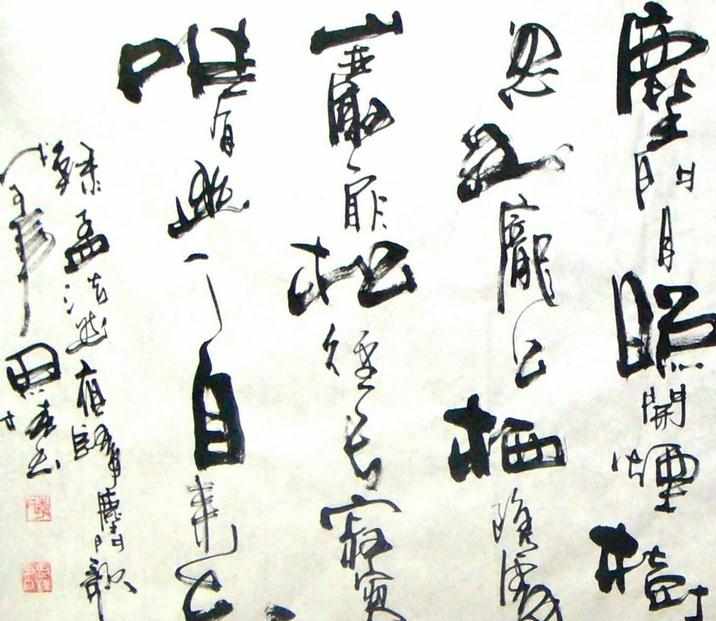 鹿門月照開煙樹
忽到龐公栖隱處
巖扉松徑長寂寥
唯有幽人自來去
錄孟浩然夜歸鹿門歌